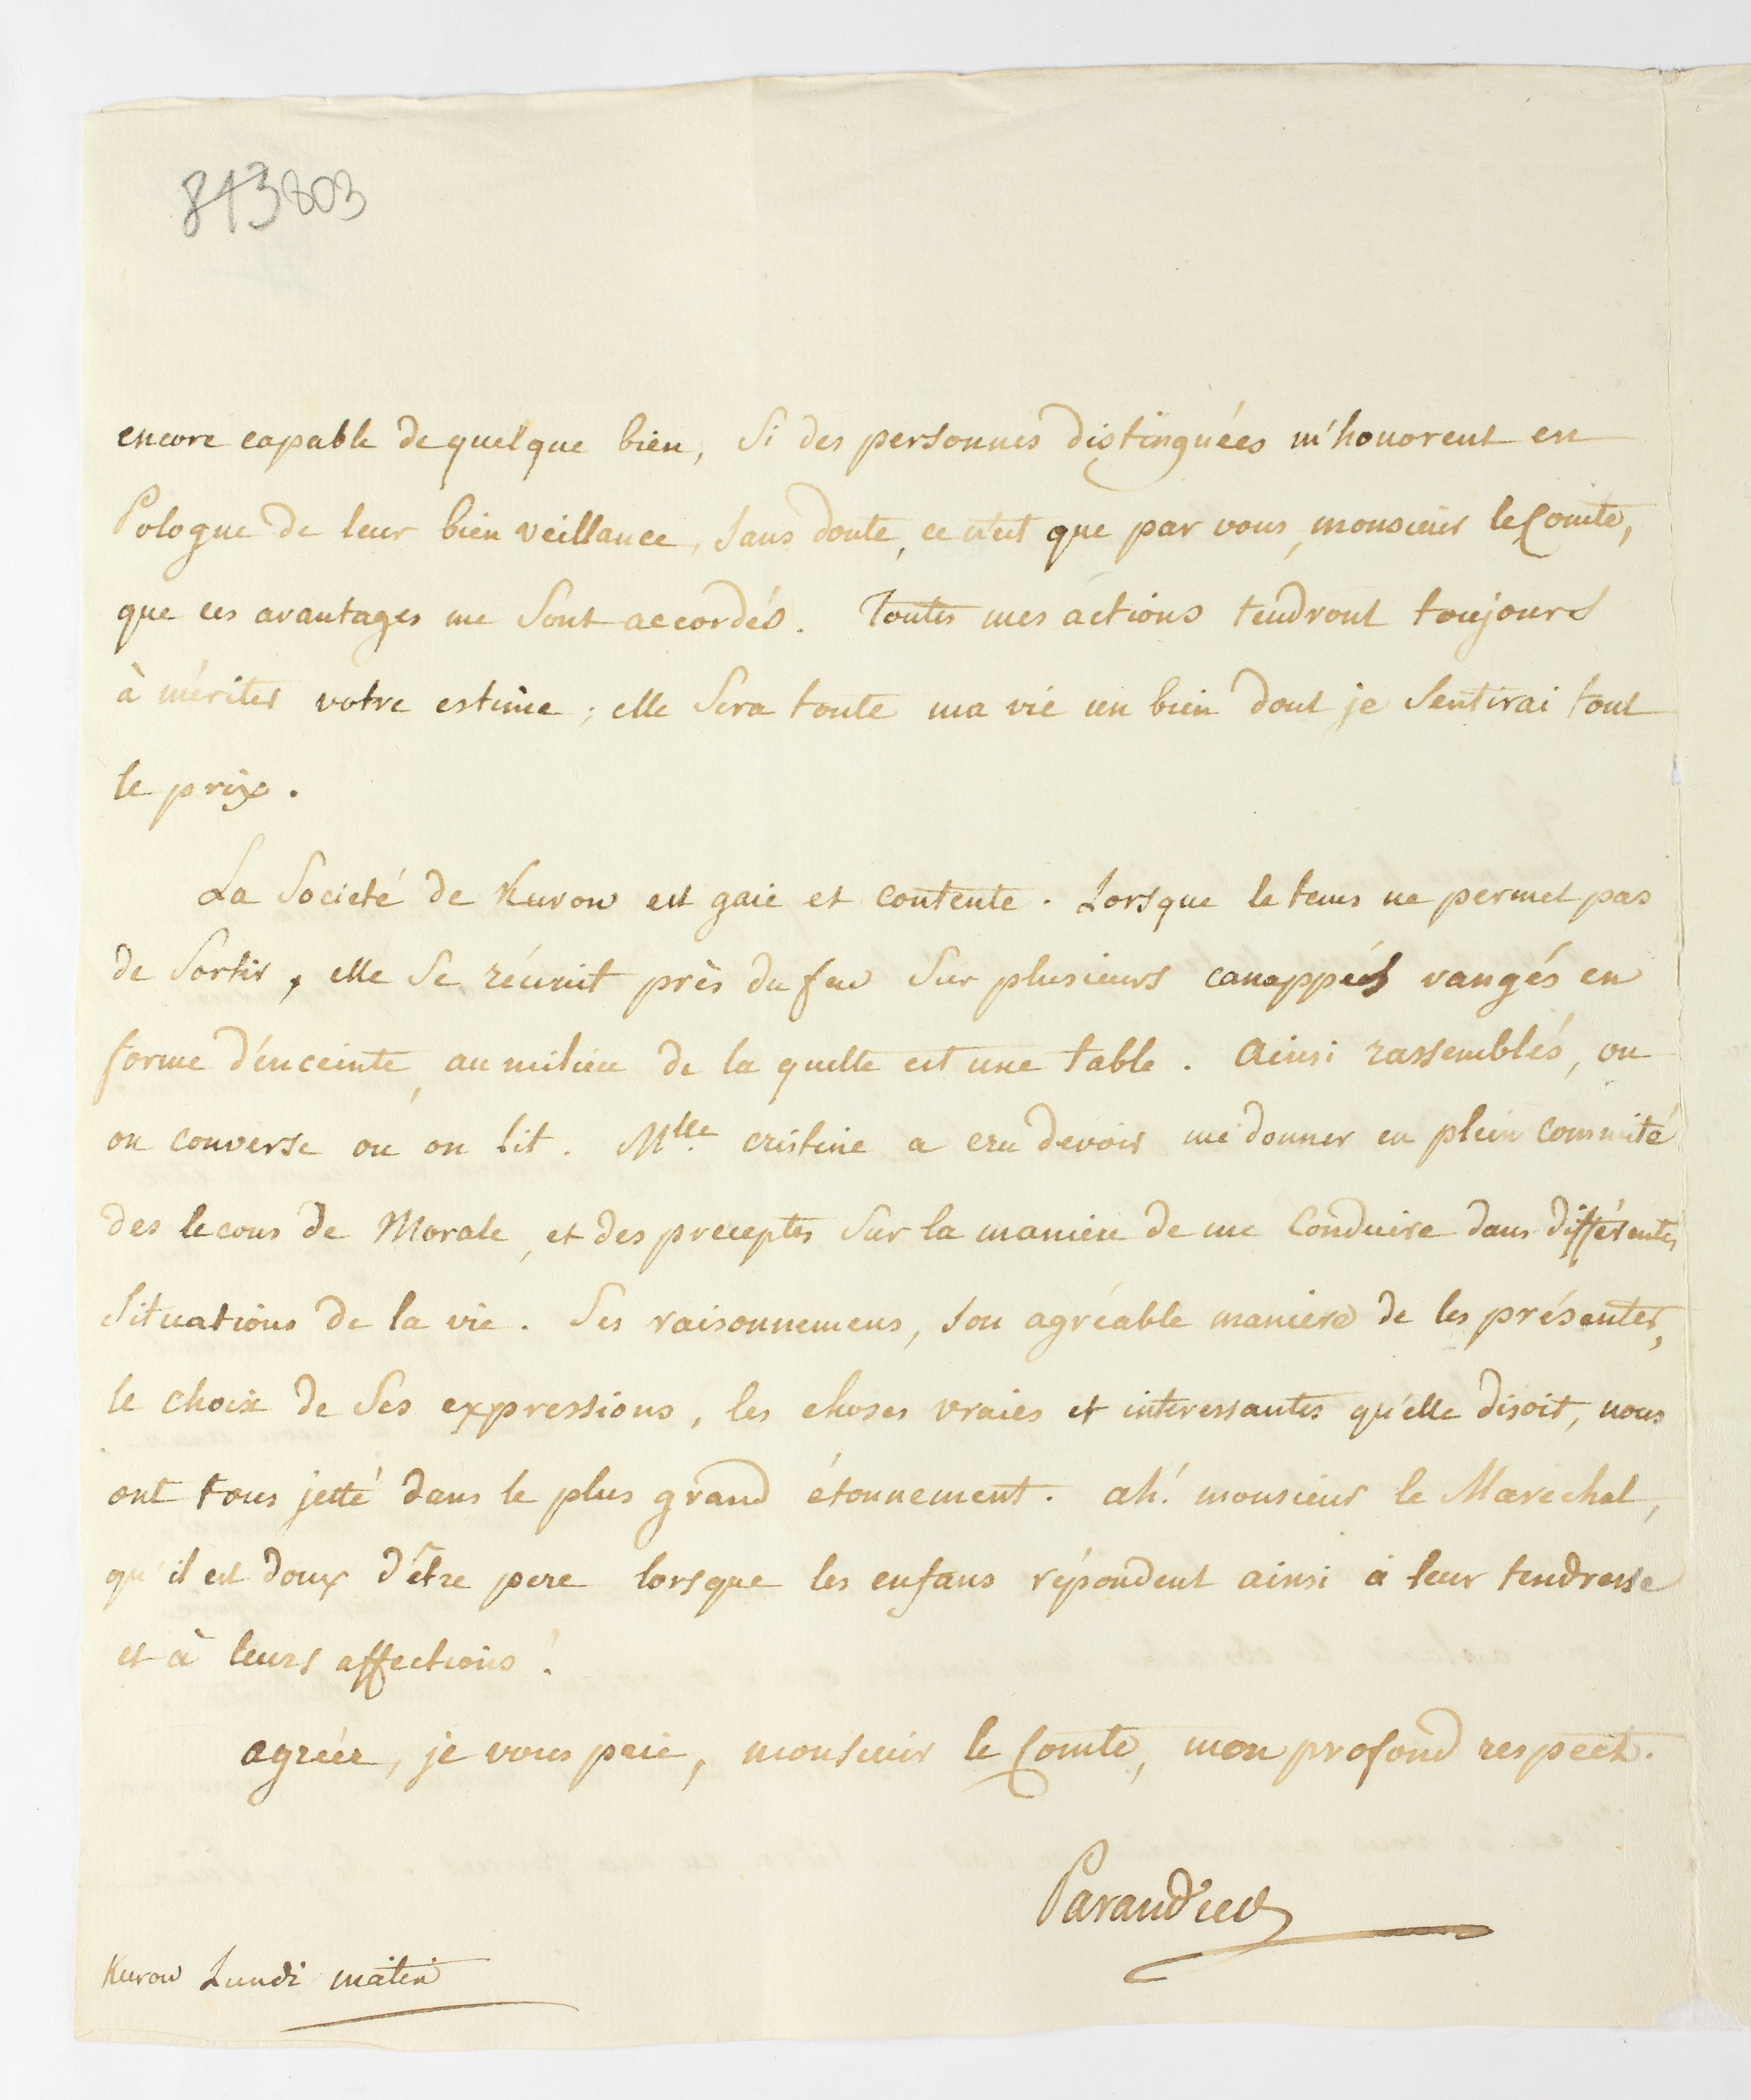 813803
encore capable de quelque bien, Si des personnes distinguées m'honorent en
Pologne de leur bien veillance, Sans doute, ce n'est que par vous, monsieur le Comte,
que ces avantages me Sont accordés. Toutes mes actions tendront toujours
à mériter votre estime ; elle Sera toute ma vie un bien dont je Sentirai tout
le prix.
La Societé de Kurow est gaie et contente. Lorsque le tems ne permet pas
de Sortir, elle Se réunit près du feu Sur plusieurs canappés rangés en
forme d'énceinte, au milieu de la quelle est une table. Ainsi rassemblés, ou
on converse ou on lit. Mlle cristine a cru devoir me donner en plein committé
des lecons de Morale, et des preceptes Sur la maniere de me Conduire dans différentes
Situations de la vie. Ses raisonnemens, Son agréable maniere de les présenter,
le choix de Ses expressions, les choses vraies et interessantes qu'elle disoit, nous
ont tous jetté dans le plus grand étonnement. ah! monsieur le Marechal,
qu'il est doux d'être pere lorsque les enfans répondent ainsi à leur tendresse
et à leurs affections!
agréer, je vous prie, monsieur le Comte, mon profond respect.
Parandier
Kurow Lundi matin